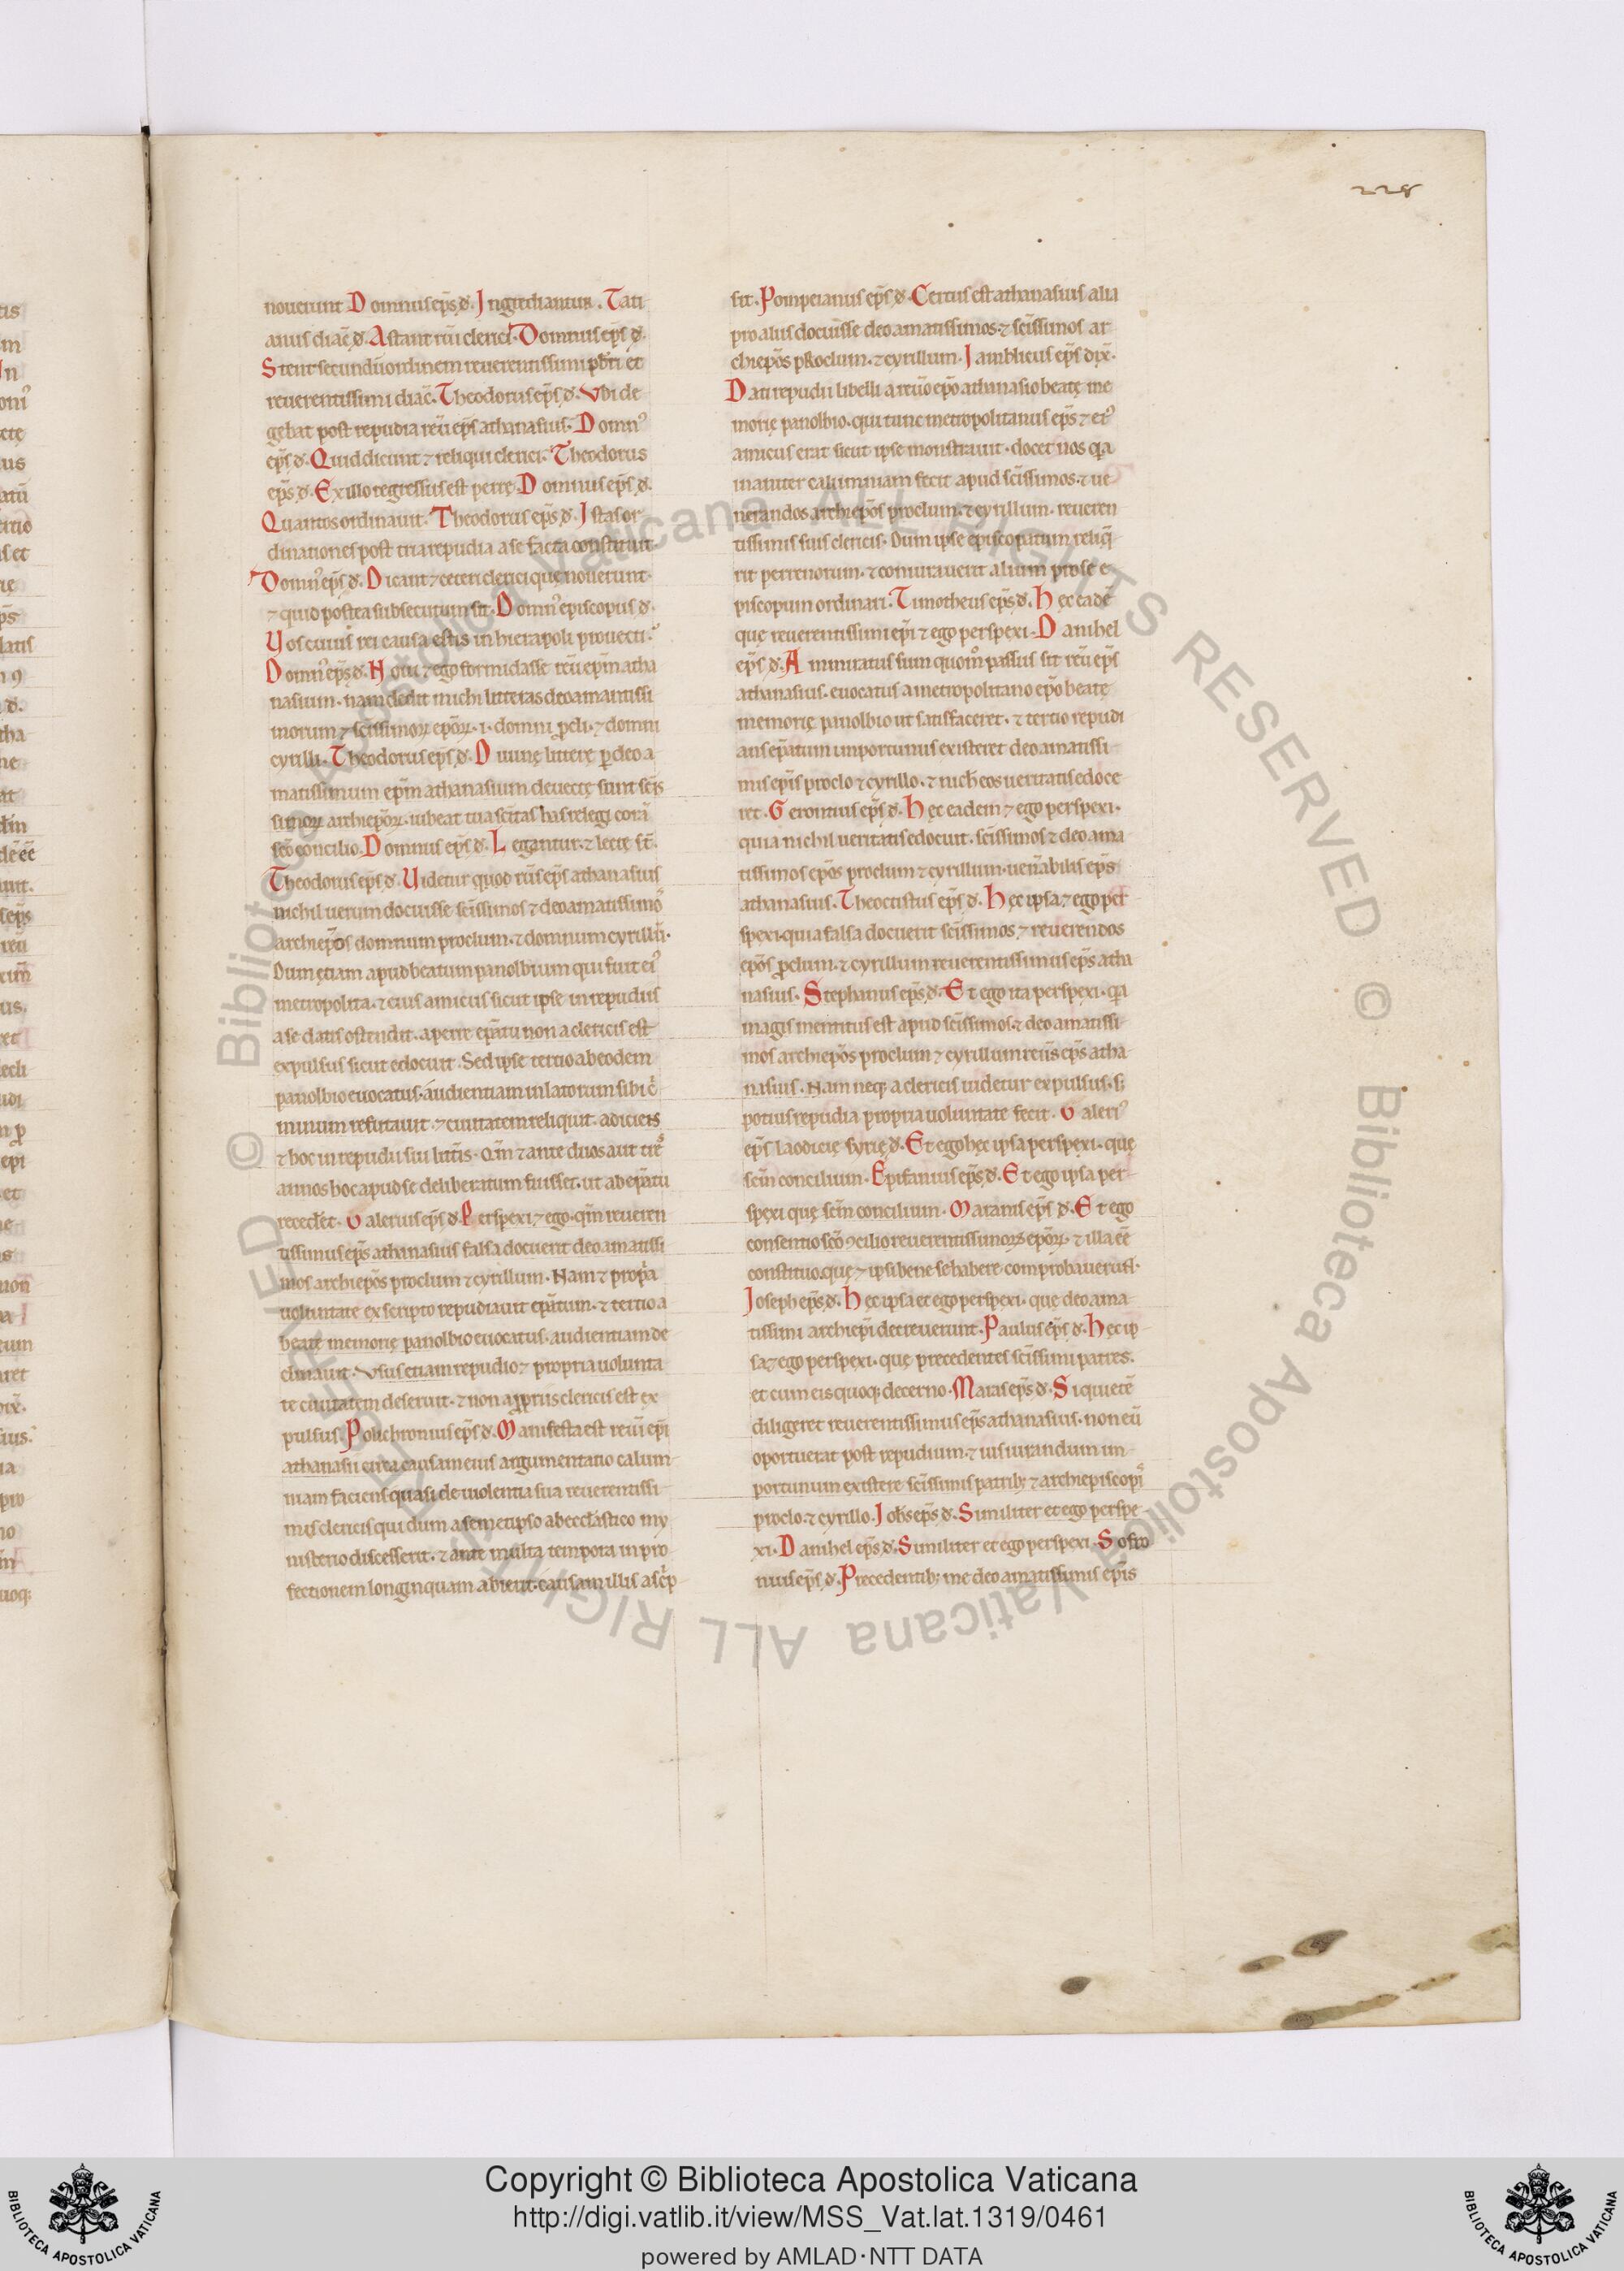 228
nouerunt Domnus ep̅s d̅. Ingrediantur. Tati
anus diac̅ d̅. Astant ru̅i clerici. Domnus ep̅s d̅.
Stent secundu̅ ordinem reuerentissimi pb̅ri et
reuerentissimi diac̅. Theodorus ep̅s d̅. Vbi de
gebat post repudia reu̅ ep̅s athanasius. Domn᾽
ep̅s d̅. Quid dicunt ⁊ reliqui clerici. Theodorus
ep̅s d̅. Ex illo regressus est perre̜. Domnus ep̅s d̅.
Quantos ordinauit. Theodorus ep̅s d̅. Istas or
dinationes post tria repudia a se facta constituit
Domn᾽ ep̅s d̅. Dicant ⁊ ceteri clerici que̜ nouerunt.
⁊ quid postea subsecutum sit. Domn᾽ episcopus d̅.
Uos cuius rei causa estis in hierapoli prouecti.
Domn᾽ ep̅s d̅. Noui ⁊ ego formidasse reu̅ ep̅m atha
nasium. nam dedit michi litteras deo amantissi
morum ⁊ sc̅issimoꝝ ep̅oꝝ. i. domni ꝓcli. ⁊ domni
cyrilli. Theodorus ep̅s d̅. Diuine̜ littere̜ ꝓ deo a
matissimum ep̅m athanasium deuecte̜ sunt sc̅is
simoꝝ archiep̅oꝝ. iubeat tua sc̅itas has relegi cora̅
sc̅o concilio. Domnus ep̅s d̅. Legantur. ⁊ lecte̜ st̅.
Theodorus ep̅s d̅. Uidetur quod ru̅s ep̅s athanasius
nichil uerum docuisse sc̅issimos ⁊ deo amatissimo᾽
archiep̅os domnum proclum. ⁊ domnum cyrillu̅.
Dum e̜tiam apud beatum panolbium qui fuit ei᾽
metropolita. ⁊ eius amicus sicut ipse in repudiis
a se datis ostendit. aperit ep̅atu non a clericis est
expulsus sicut edocuit. Sed ipse tertio ab eodem
panolbio euocatus. audientiam inlatorum sibi c̓
minum refutauit. ⁊ ciuitatem reliquit. adiciens
⁊ hoc in repudii sui litt̅is. Qm̅ ⁊ ante duos aut tre᾽
annos hoc apud se deliberatum fuisset. ut ab ep̅atu
recederet. Ualerius ep̅s d̅. Perspexi ⁊ ego. qm̅ reueren
tissimus ep̅s athanasius falsa docuerit deo amatissi
mos archiep̅os proclum ⁊ cyrillum. Nam ⁊ propa̓
uoluntate ex scripto repudiauit ep̅atum. ⁊ tertio a
beate̜ memorie̜ panolbio euocatus. audientiam de
clinauit. Vsus etiam repudio ⁊ propria uolunta
te ciuitatem deseruit. ⁊ non a ꝓpriis clericis est ex
pulsus. Polichronius ep̅s d̅. Manifesta est reui̅ ep̅i
athanasii circa causam eius argumentatio calum
niam faciens quasi de uiolentia sua reuerentissi
mis clericis qui dum a semetipso ab eccl̅astico my
nisterio discesserit. ⁊ ante multa tempora in pro
fectionem longinquam abierit. causam illis asc̓p
sit. Pompeianus ep̅s d̅. Certus est athanasius alia
pro aliis docuisse deo amatissimos. ⁊ sc̅issimos ar
chiep̅os proclum. ⁊ cyrillum. Iamblicus ep̅s dix̅.
Dati repudii libelli a reu̅o ep̅o athanasio beate̜ me
morie̜ panolbio. qui tunc metropolitanus ep̅s ⁊ ei᾽
amicus erat sicut ipse monstrauit. docet nos qa̓
inaniter calumniam fecit apud sc̅issimos. ⁊ ue
nerandos archiep̅os proclum. ⁊ cyrillum. reueren
tissimis suis clericis. Dum ipse episcopatum reliq̓
rit perrenorum. ⁊ coniurauerit alium pro se e
piscopum ordinari. Timotheus ep̅s d̅. Hec eade̅
que̜ reuerentissimi ep̅i ⁊ ego perspexi. Danihel
ep̅s d̅. Ammiratus sum quom̊ passus sit reu̅ ep̅s
athanasius. euocatus a metropolitano ep̅o beate̜
memorie̜ panolbio ut satisfaceret. ⁊ tertio repudi
ans ep̅atum importunus existeret deo amatissi
mis ep̅is proclo ⁊ cyrillo. ⁊ nich̅ eos ueritatis edoce
ret. Gerontius ep̅s d̅. Hec eadem ⁊ ego perspexi.
quia nichil ueritatis edocuit. sc̅issimos ⁊ deo ama
tissimos ep̅os proclum ⁊ cyrillum. uen̅abilis ep̅s
athanasius. Theoctistus ep̅s d̅. Hec ipsa ⁊ ego per
spexi. quia falsa docuerit sc̅issimos. ⁊ reuerendos
ep̅os ꝓclum. ⁊ cyrillum reuerentissimus ep̅s atha
nasius. Stephanus ep̅s d̅. Et ego ita perspexi. qa̓
magis mentitus est apud sc̅issimos. ⁊ deo amatissi
mos archiep̅os proclum ⁊ cyrillum reu̅s ep̅s atha
nasius. Nam neq; a clericis uidetur expulsus. s;
potius repudia propria uoluntate fecit. Ualeri᾽
ep̅s laodicie̜ syrie̜ d̅. Et ego hec ipsa perspexi. que̜
sc̅m concilium. Epifanius ep̅s d̅. Et ego ipsa per
spexi que̜ sc̅m concilium. Maranis ep̅s d̅. Et ego
consentio sc̅o ꝯcilio reuerentissimoꝝ ep̅oꝝ. ⁊ illa ee̅
constituo. que̜ ⁊ ipsi bene se habere comprobauerunt.
Ioseph ep̅s d̅. Hec ipsa et ego perspexi. que̜ deo ama
tissimi archiep̅i decreuerunt. Paulus ep̅s d̅. Hec ip
sa ⁊ ego perspexi. que̜ precedentes sc̅issimi patres.
et cum eis quoq; decerno. Maras ep̅s d̅. Si quiete̅
diligeret reuerentissimus ep̅s athanasius. non eu̅
oportuerat post repudium. ⁊ iusiurandum im
portunum existere sc̅issimis patrib; ⁊ archiepiscopi᾽
proclo. ⁊ cyrillo. Ioh̅s ep̅s d̅. Similiter et ego perspe
xi. Danihel ep̅s d̅. Similiter et ego perspexi. Sofro
nius ep̅s d̅. Precedentib; me deo amatissimis ep̅is
© Biblioteca Apostolica Vaticana ALL RIGHTS RESERVED © Biblioteca Apostolica Vaticana ALL RIGHTS RESERVED
Copyright © Biblioteca Apostolica Vaticana
http://digi.vatlib.it/view/MSS_Vat.lat.1319/0461
powered by AMLAD·NTT DATA
BIBLIOTECA APOSTOLICA VATICANA
BIBLIOTECA APOSTOLICA VATICANA